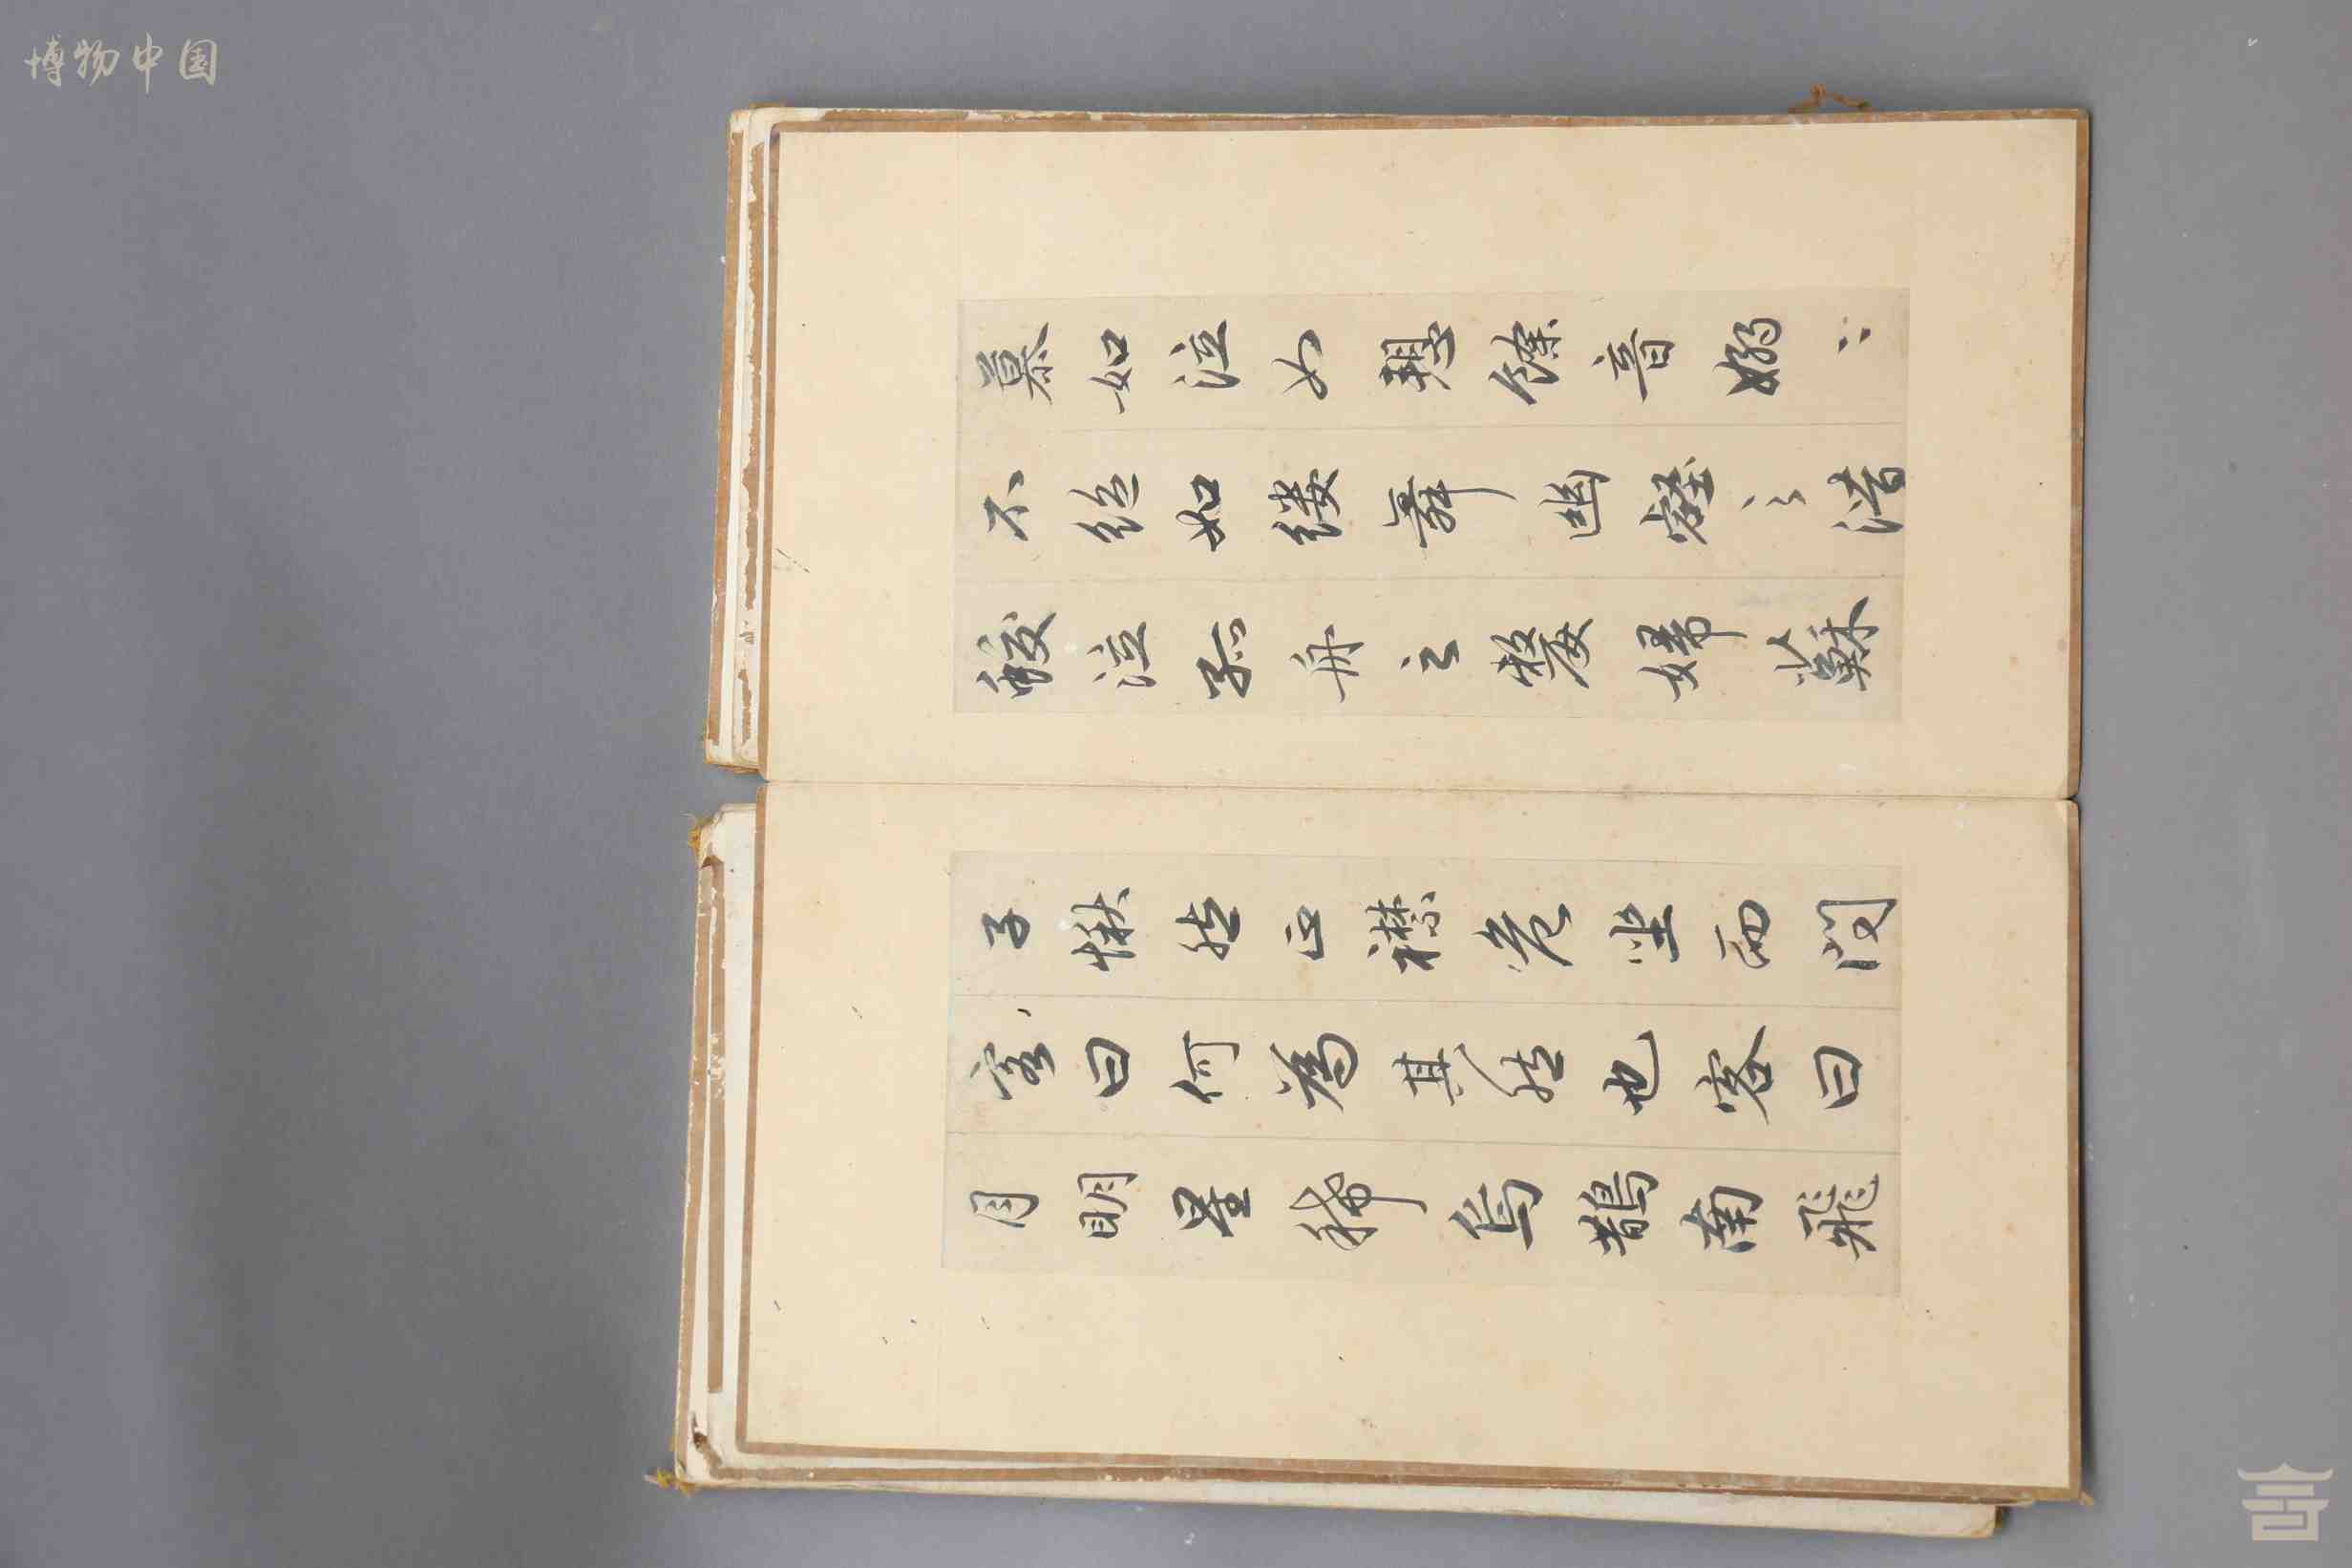 慕如泣如愬餘音嫋〻
不絕如縷舞幽壑之潛
蛟泣孤舟之嫠婦蘇
子愀然正襟危坐而問
客曰何為其然也客曰
月明星稀烏鵲南飛
博物中国